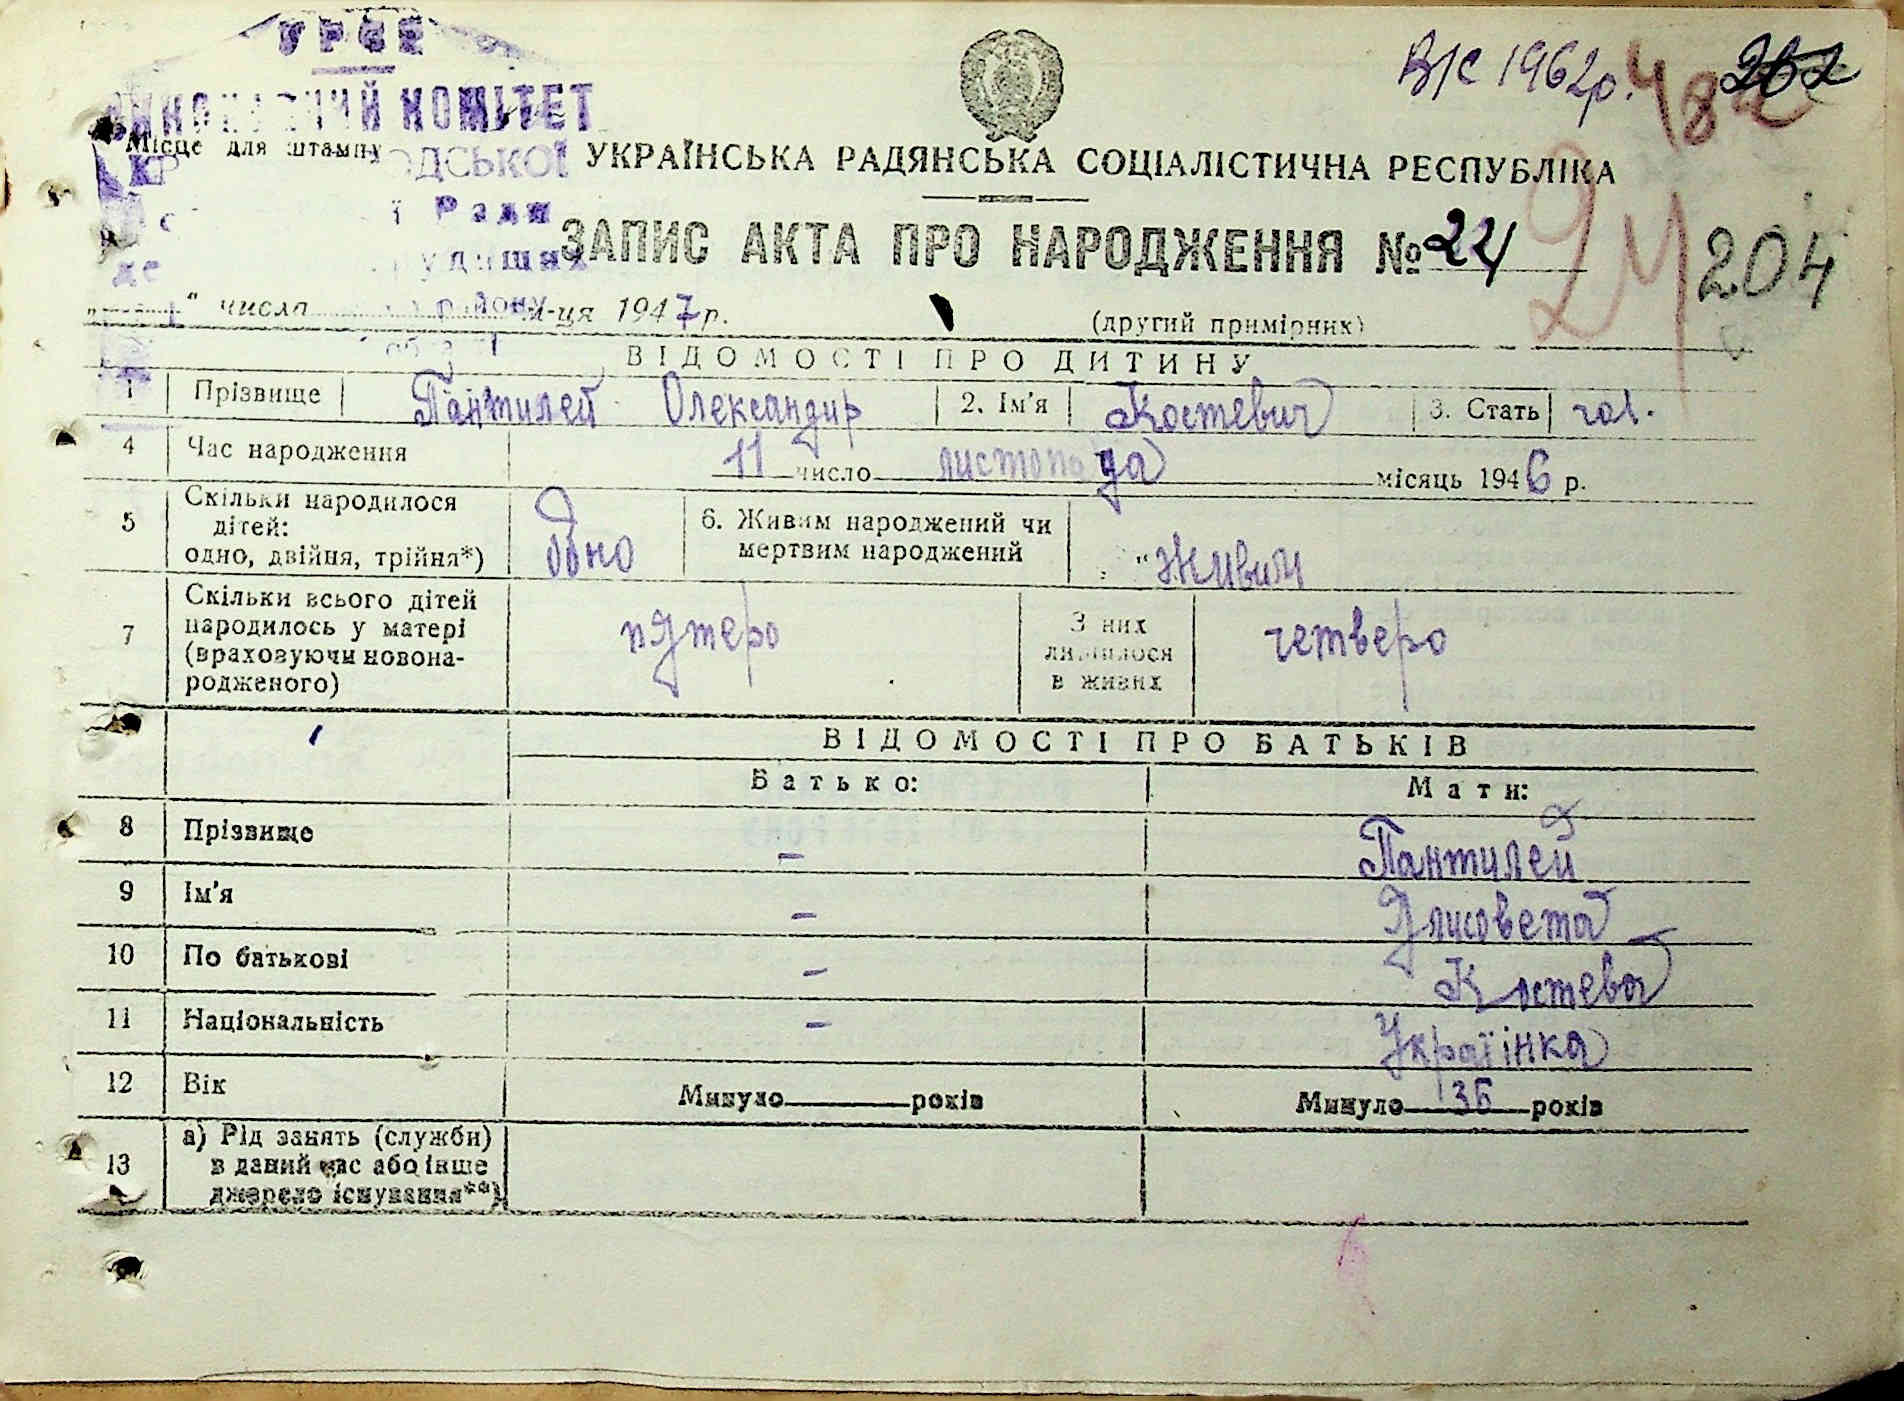 УРСР
В/С 1962р. 48
КОМІТЕТ
Місце для штампу
УКРАЇНСЬКА РАДЯНСЬКА СОЦІАЛІСТИЧНА РЕСПУБЛІКА
Ради
ЗАПИС АКТА ПРО НАРОДЖЕННЯ № 24
24 204
" числа м-ця 1947 р.
(другий примірник)
ВІДОМОСТІ ПРО ДИТИНУ
1 Прізвище Пантилей Олександир 2. Ім'я Костевич 3. Стать чол.
4 Час народження 11 число листопада місяць 1946 р.
5 Скільки народилося дітей: одно, двійня, трійня*) одно 6. Живим народжений чи мертвим народжений "Живим
7 Скільки всього дітей народилось у матері (враховуючи новонародженого) пятеро З них лишилося в живих четверо
ВІДОМОСТІ ПРО БАТЬКІВ
Батько: Мати:
8 Прізвище – Пантилей
9 Ім'я – Єлисовета
10 По батькові – Костева
11 Національність – Україінка
12 Вік Минуло років Минуло 36 років
13 а) Рід занять (служби) в даний час або інше джерело існування**)